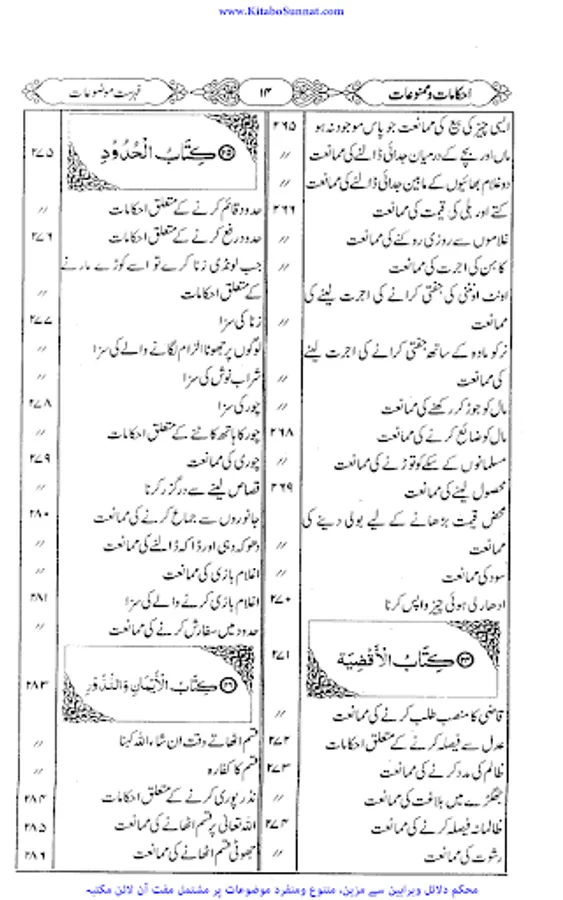 www.KitaboSunnat.com
احکامات و ممنوعات ۱۴ فہرست موضوعات
ایسی چیز کی بیع کی ممانعت جو پاس موجود نہ ہو ۲۶۵
ماں اور بچے کے درمیان جدائی ڈالنے کی ممانعت //
دو غلام بھائیوں کے مابین جدائی ڈالنے کی ممانعت //
کتے اور بلی کی قیمت کی ممانعت ۲۶۶
غلاموں سے روزی روکنے کی ممانعت //
کاہن کی اجرت کی ممانعت //
اونٹ اونٹنی کی جفتی کرانے کی اجرت لینے کی
ممانعت //
نر کو مادہ کے ساتھ جفتی کرانے کی اجرت لینے
کی ممانعت //
مال کو جوڑ کر رکھنے کی ممانعت //
مال کو ضائع کرنے کی ممانعت ۲۶۸
مسلمانوں کے سکے کو توڑنے کی ممانعت //
محصول لینے کی ممانعت ۲۶۹
محض قیمت بڑھانے کے لیے بولی دینے کی
ممانعت //
سود کی ممانعت //
ادھار لی ہوئی چیز واپس کرنا ۲۷۰
كِتَابُ الْأَقْضِيَة ۲۷۱
قاضی کا منصب طلب کرنے کی ممانعت //
عدل سے فیصلہ کرنے کے متعلق احکامات ۲۷۲
ظالم کی مدد کرنے کی ممانعت ۲۷۳
جھگڑے میں بلاغت کی ممانعت //
ظالمانہ فیصلہ کرنے کی ممانعت ۲۷۴
رشوت کی ممانعت //
كِتَابُ الْحُدُوْدِ ۲۷۵
حدود قائم کرنے کے متعلق احکامات //
حدود رفع کرنے کے متعلق احکامات ۲۷۶
جب لونڈی زنا کرے تو اسے کوڑے مارنے
کے متعلق احکامات //
زنا کی سزا ۲۷۷
لوگوں پر جھوٹا الزام لگانے والے کی سزا //
شراب نوش کی سزا //
چور کی سزا ۲۷۸
چور کا ہاتھ کاٹنے کے متعلق احکامات //
چوری کی ممانعت ۲۷۹
قصاص لینے سے درگزر کرنا //
جانوروں سے جماع کرنے کی ممانعت ۲۸۰
دھوکہ دہی اور ڈاکہ ڈالنے کی ممانعت //
اغلام بازی کی ممانعت //
اغلام بازی کرنے والے کی سزا ۲۸۱
حدود میں سفارش کرنے کی ممانعت //
كِتَابُ الْأَيْمَانِ وَالنُّذُوْرِ ۲۸۳
قسم اٹھاتے وقت ان شاء اللہ کہنا //
قسم کا کفارہ //
نذر پوری کرنے کے متعلق احکامات ۲۸۴
اللہ تعالیٰ پر قسم اٹھانے کی ممانعت ۲۸۵
جھوٹی قسم اٹھانے کی ممانعت ۲۸۶
محکم دلائل وبراہین سے مزین، متنوع ومنفرد موضوعات پر مشتمل مفت آن لائن مکتبہ